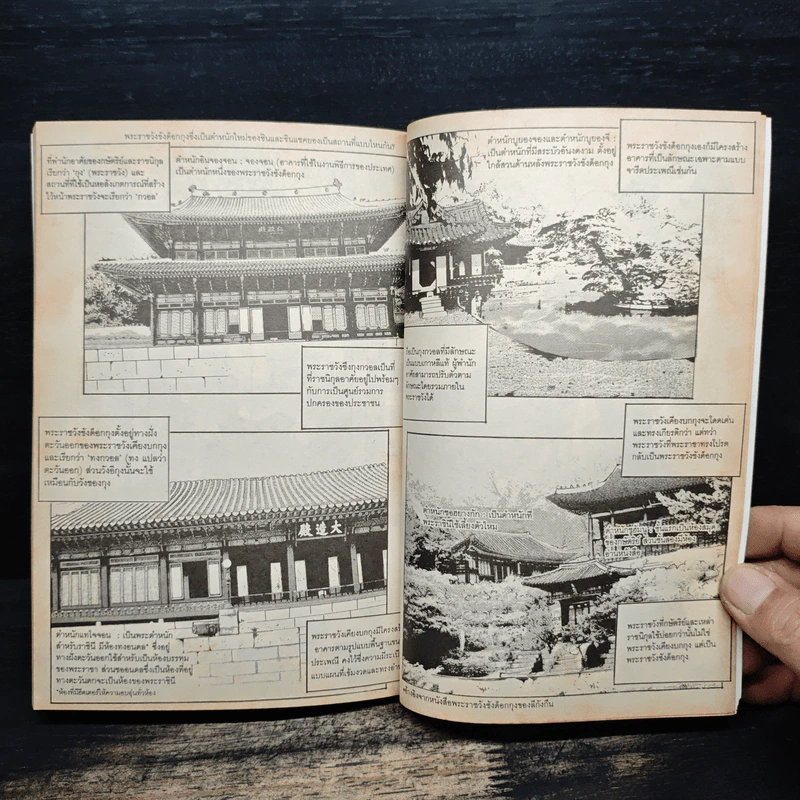 พระราชวังชังด็อกกุงซึ่งเป็นตำหนักใหม่ของชินและชินแชคยองเป็นสถานที่แบบไหนกัน?
ที่พำนักอาศัยของกษัตริย์และราชนิกุล
เรียกว่า 'กุง' (พระราชวัง) และ
สถานที่ที่ใช้เป็นหอสังเกตการณ์ที่สร้าง
ไว้หน้าพระราชวังจะเรียกว่า 'กวอล'
ตำหนักอินจองจอน : จองจอน (อาคารที่ใช้ในงานพิธีการของประเทศ)
เป็นตำหนักหนึ่งของพระราชวังชังด็อกกุง
พระราชวังซึงกวอลเป็นที่
ที่ราชนิกุลอาศัยอยู่ไปพร้อมๆ
กับการเป็นศูนย์รวมการ
ปกครองของประชาชน
พระราชวังชังด็อกกุงตั้งอยู่ทางฝั่ง
ตะวันออกของพระราชวังเคียงบกกุง
และเรียกว่า 'ทงกวอล' (ทง แปลว่า
ตะวันออก) ส่วนวังอิกุงนั้นจะใช้
เหมือนกับวังของกุง
殿造大
ตำหนักแทโจจอน : เป็นพระตำหนัก
สำหรับราชินี มีห้องทงอนดล* ซึ่งอยู่
ทางฝั่งตะวันออกใช้สำหรับเป็นห้องบรรทม
ของพระราชา ส่วนซออนดลซึ่งเป็นห้องที่อยู่
ทางตะวันตกจะเป็นห้องของพระราชินี
*ห้องที่มีฮีตเตอร์ให้ความอบอุ่นทั่วห้อง
พระราชวังเคียงบกกุงมีโครงสร้
อาคารตามรูปแบบพื้นฐานขน
ประเพณี คงไว้ซึ่งความมีระเบี
แบบแผนที่เข้มงวดและทรงอำ
ตำหนักบูยองจองและตำหนักบูยองจี :
เป็นตำหนักที่มีสระบัวอันงดงาม ตั้งอยู่
ใกล้สวนด้านหลังพระราชวังชังด็อกกุง
พระราชวังชังด็อกกุงเองก็มีโครงสร้าง
อาคารที่เป็นลักษณะเฉพาะตามแบบ
จารีตประเพณีเช่นกัน
เป็นกุงกวอลที่มีลักษณะ
เป็นแบบเกาหลีแท้ ผู้พำนัก
อาศัยสามารถปรับตัวตาม
ลักษณะโดยรวมภายใน
พระราชวังได้
พระราชวังเคียงบกกุงจะโดดเด่น
และทรงเกียรติกว่า แต่ทว่า
วังที่พระราชาทรงโปรด
กลับเป็นพระราชวังชังด็อกกุง
: เป็นตำหนักที่
พระราชินีใช้เลี้ยงตัวไหม
ชั้นแรกเป็นห้องสมุด
ของกษัตริย์ ส่วนชั้นสองมีห้อง
อ่านหนังสือ
พระราชวังที่กษัตริย์และเหล่า
ราชนิกุลใช้บ่อยกว่านั้นไม่ใช่
พระราชวังเคียงบกกุง แต่เป็น
พระราชวังชังด็อกกุง
อ้างอิงจากหนังสือพระราชวังชังด็อกกุงของลีกังกัน